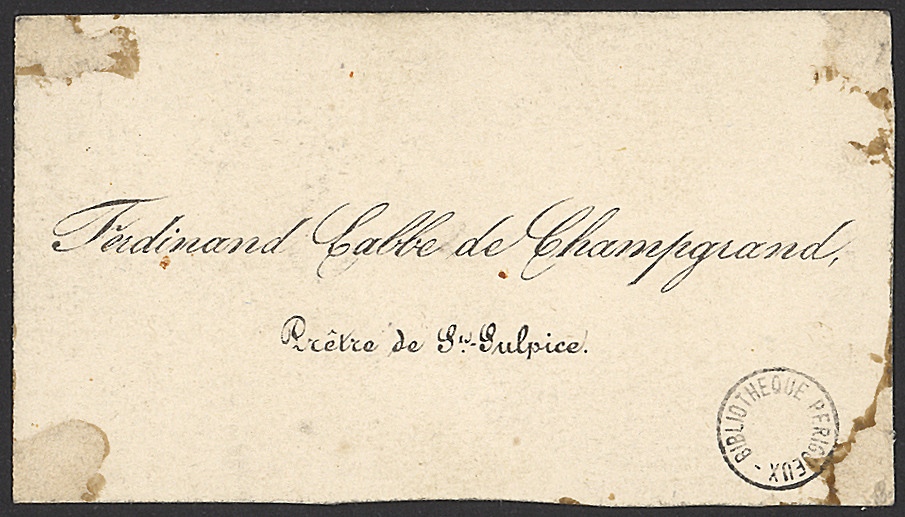 Ferdinand Labbe de Champgrand,
Prêtre de St-Sulpice.
BIBLIOTHEQUE PERIGUEUX -